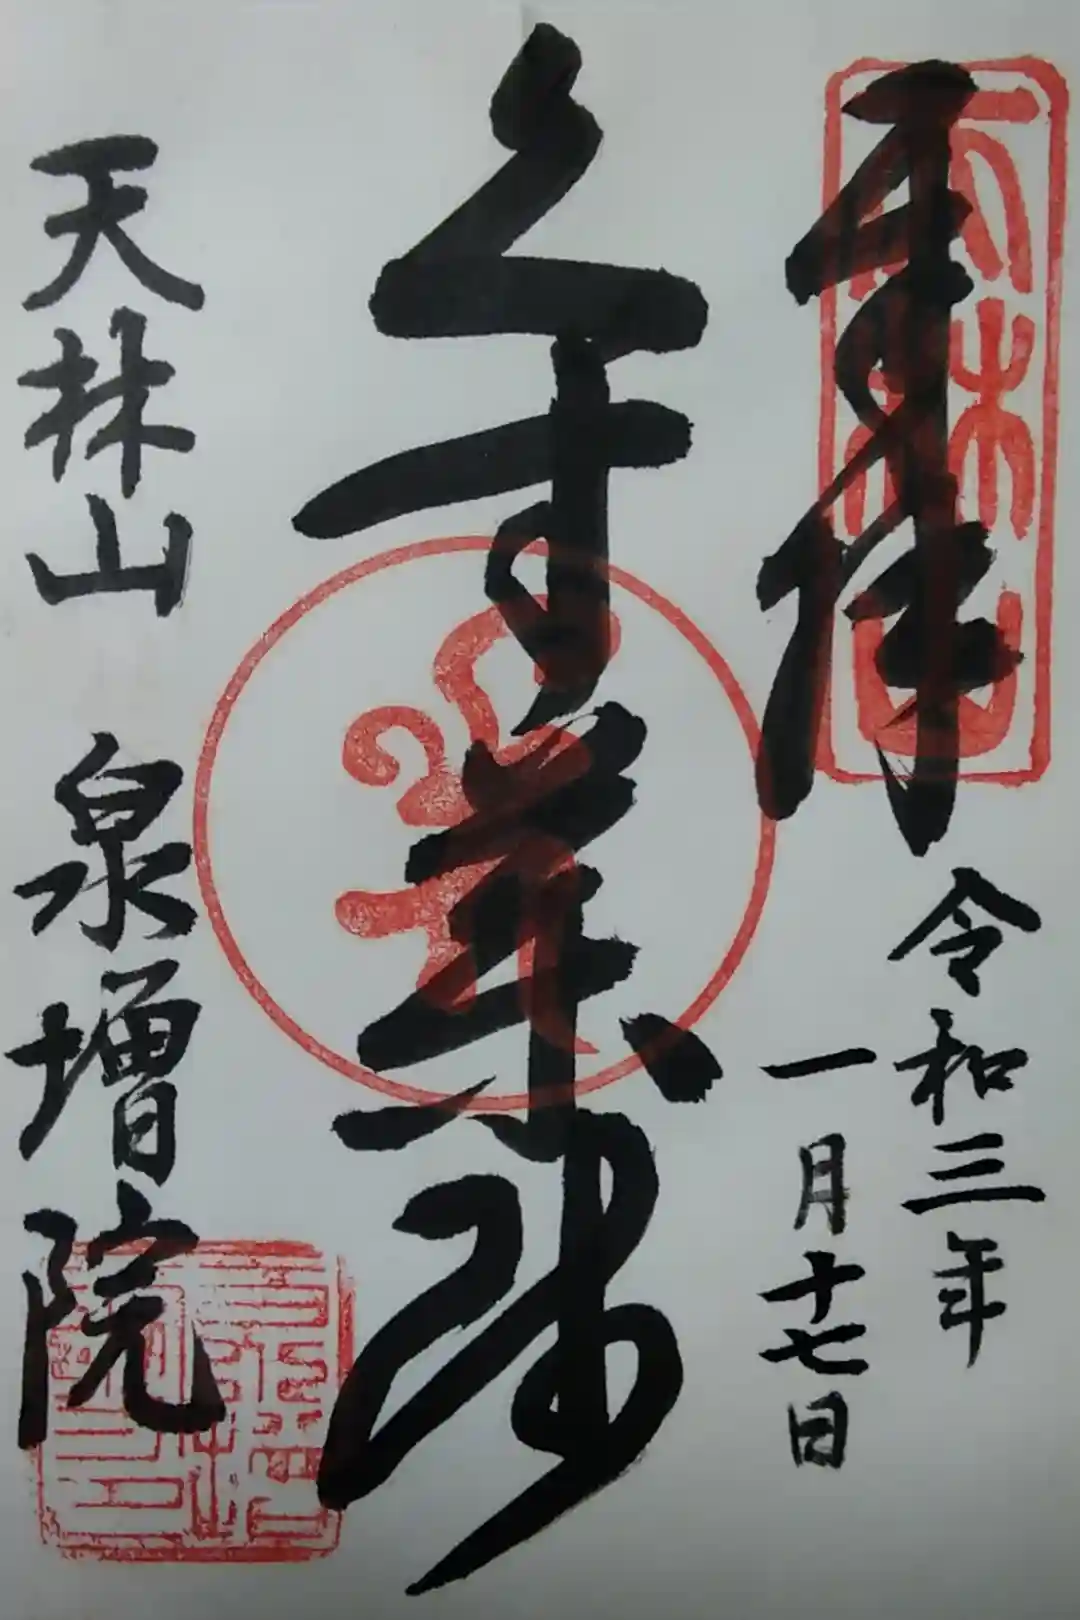 奉拝
天林山
令和三年
一月十七日
薬師
天林山 泉増院